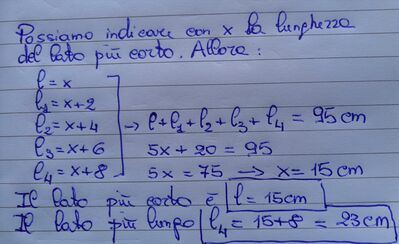 Possiamo indicare con x la lunghezza
del lato più corto. Allora:
l = x
l₁ = x+2
l₂ = x+4 → l+l₁+l₂+l₃+l₄ = 95 cm
l₃ = x+6 5x + 20 = 95
l₄ = x+8 5x = 75 → x = 15 cm
Il lato più corto è l = 15cm
Il lato più lungo l₄ = 15+8 = 23 cm